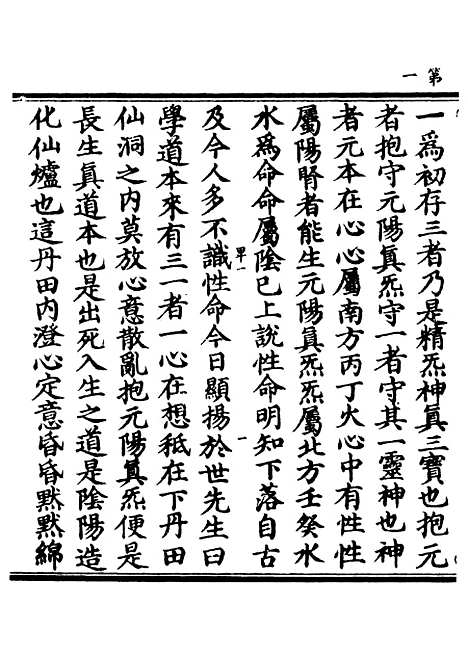 第一
一爲初存三者乃是精炁神眞三寶也抱元
者抱守元陽眞炁守一者守其一靈神也神
者元本在心心屬南方丙丁火心中有性性
屬陽腎者能生元陽眞炁炁屬北方壬癸水
水爲命命屬陰已上說性命明知下落自古
卑一
一
及今人多不識性命今日顯揚於世先生曰
學道本來有三一者一心在想秪在下丹田
仙洞之内莫放心意散亂抱元陽眞炁便是
長生眞道本也是出死入生之道是陰陽造
化仙爐也這丹田内澄心定意昏昏默默綿